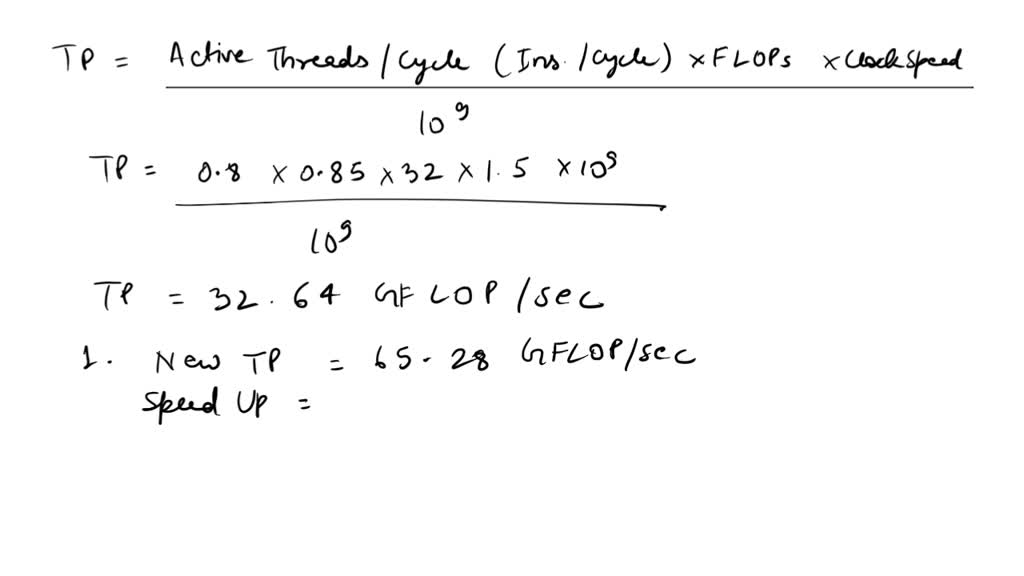 TP = Active Threads / Cycle (Ins. / Cycle) × FLOPs × Clock Speed
10^9
TP = 0.8 × 0.85 × 32 × 1.5 × 10^9
10^9
TP = 32.64 GFLOP/sec
1. New TP = 65.28 GFLOP/sec
Speed Up =